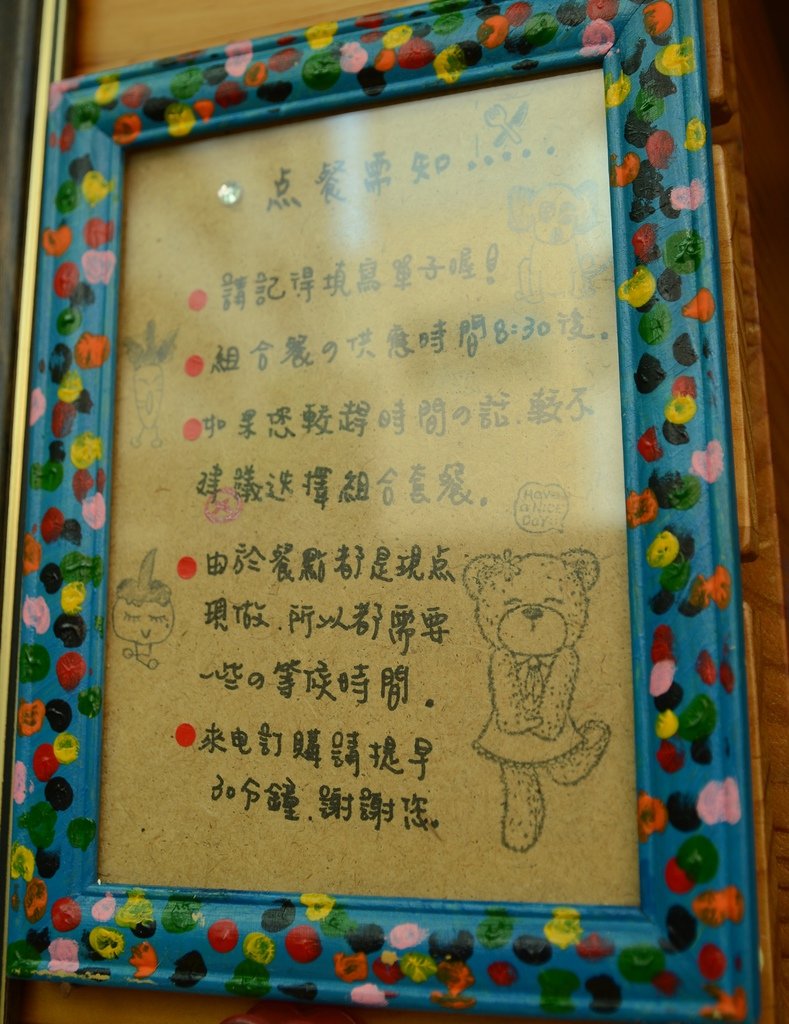 点餐需知.....
請記得填寫單子喔!
組合餐の供應時間8:30後.
如果您較趕時間の話.較不
建議选擇組合套餐.
Have
a NICE
DAY.
由於餐點都是現点
現做.所以都需要
一些の等候時間.
來电訂購請提早
30分鐘.謝謝您.